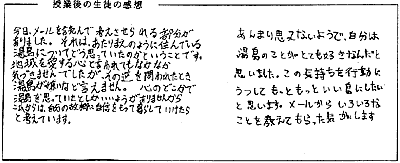 授業後の生徒の感想
今日、メールを読んで考えさせられる部分が
ありました。それは、あたりまえのように住んでいる
湯島についてどう思っていたのかということです。
地域を愛する心と言われてもなかなか
気づきませんでしたが、その逆を問われたとき
湯島が嫌いなど言えません。心のどこかで
湯島を思っていたとしかいいようがありませんから
これからは、自分の故郷に自信をもって暮らしていけたら
と考えています。
あんまり思ってないようで、自分は
湯島のことがとても好きなんだと
思いました。この気持ちを行動に
うつして もっともっといい島にしたい
と思います。メールから いろいろな
ことを教えてもらった気がします